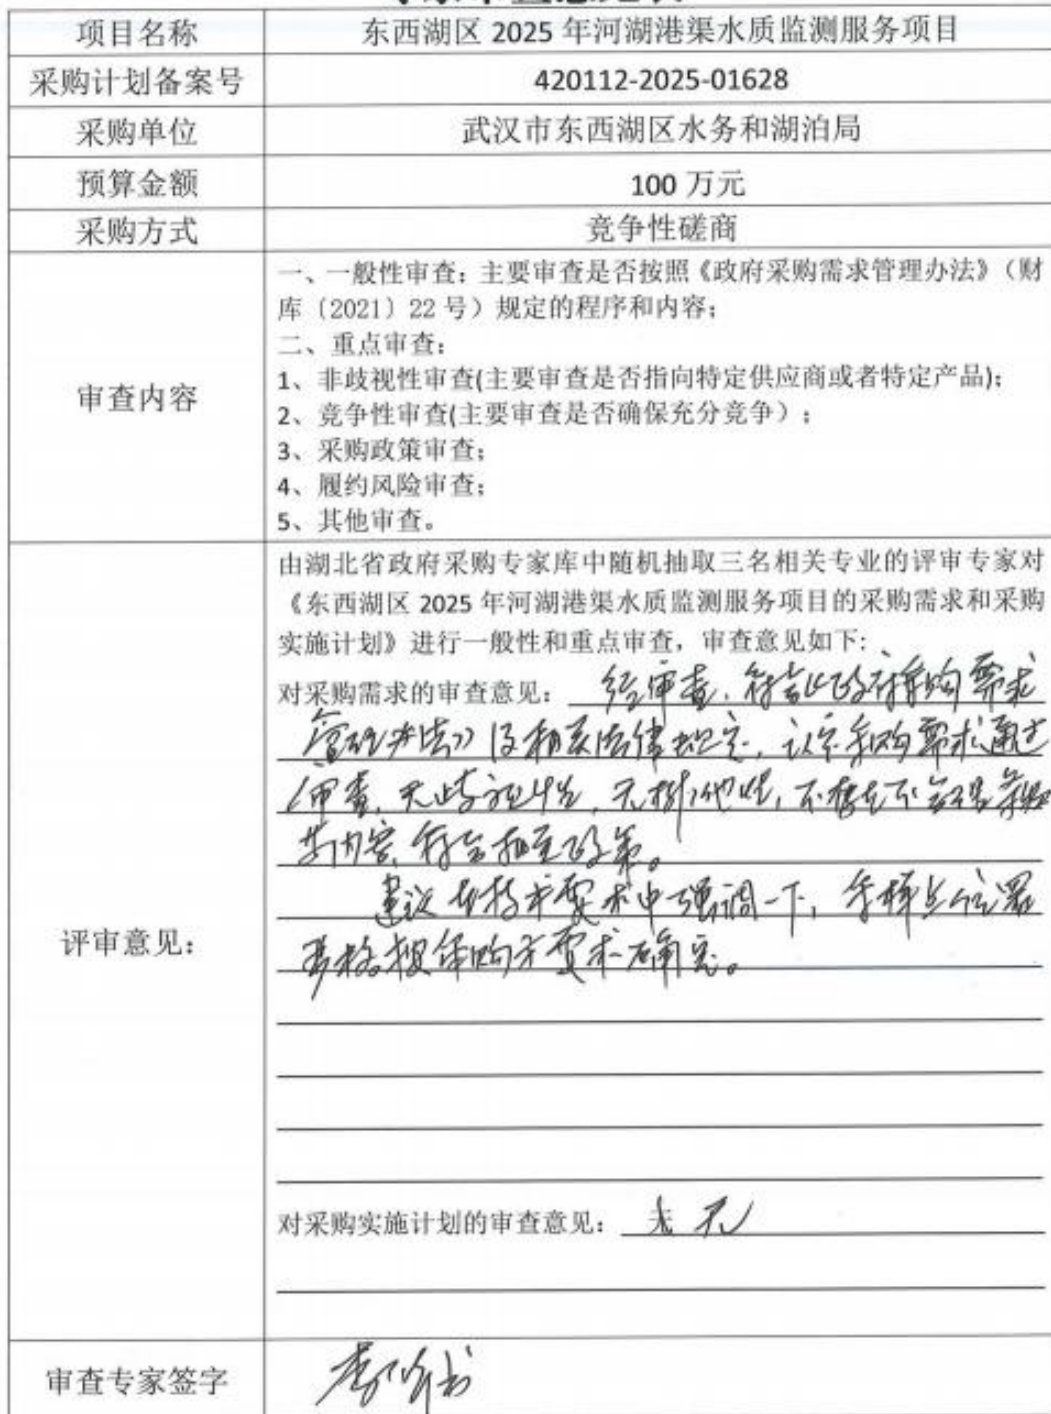 项目名称 东西湖区 2025 年河湖港渠水质监测服务项目
采购计划备案号 420112-2025-01628
采购单位 武汉市东西湖区水务和湖泊局
预算金额 100 万元
采购方式 竞争性磋商
审查内容
一、一般性审查：主要审查是否按照《政府采购需求管理办法》（财
库〔2021〕22 号）规定的程序和内容；
二、重点审查：
1、非歧视性审查(主要审查是否指向特定供应商或者特定产品)；
2、竞争性审查(主要审查是否确保充分竞争）；
3、采购政策审查；
4、履约风险审查；
5、其他审查。
评审意见：
由湖北省政府采购专家库中随机抽取三名相关专业的评审专家对
《东西湖区 2025 年河湖港渠水质监测服务项目的采购需求和采购
实施计划》进行一般性和重点审查，审查意见如下：
对采购需求的审查意见： 经审查，符合《政府采购需求
管理办法》及相关法律规定，认定采购需求通过
审查，无歧视性，无排他性，不存在不合理条款
等内容，符合相关政策。
建议在技术要求中强调一下，采样点位置
严格按采购方要求确定。
对采购实施计划的审查意见： 无
审查专家签字